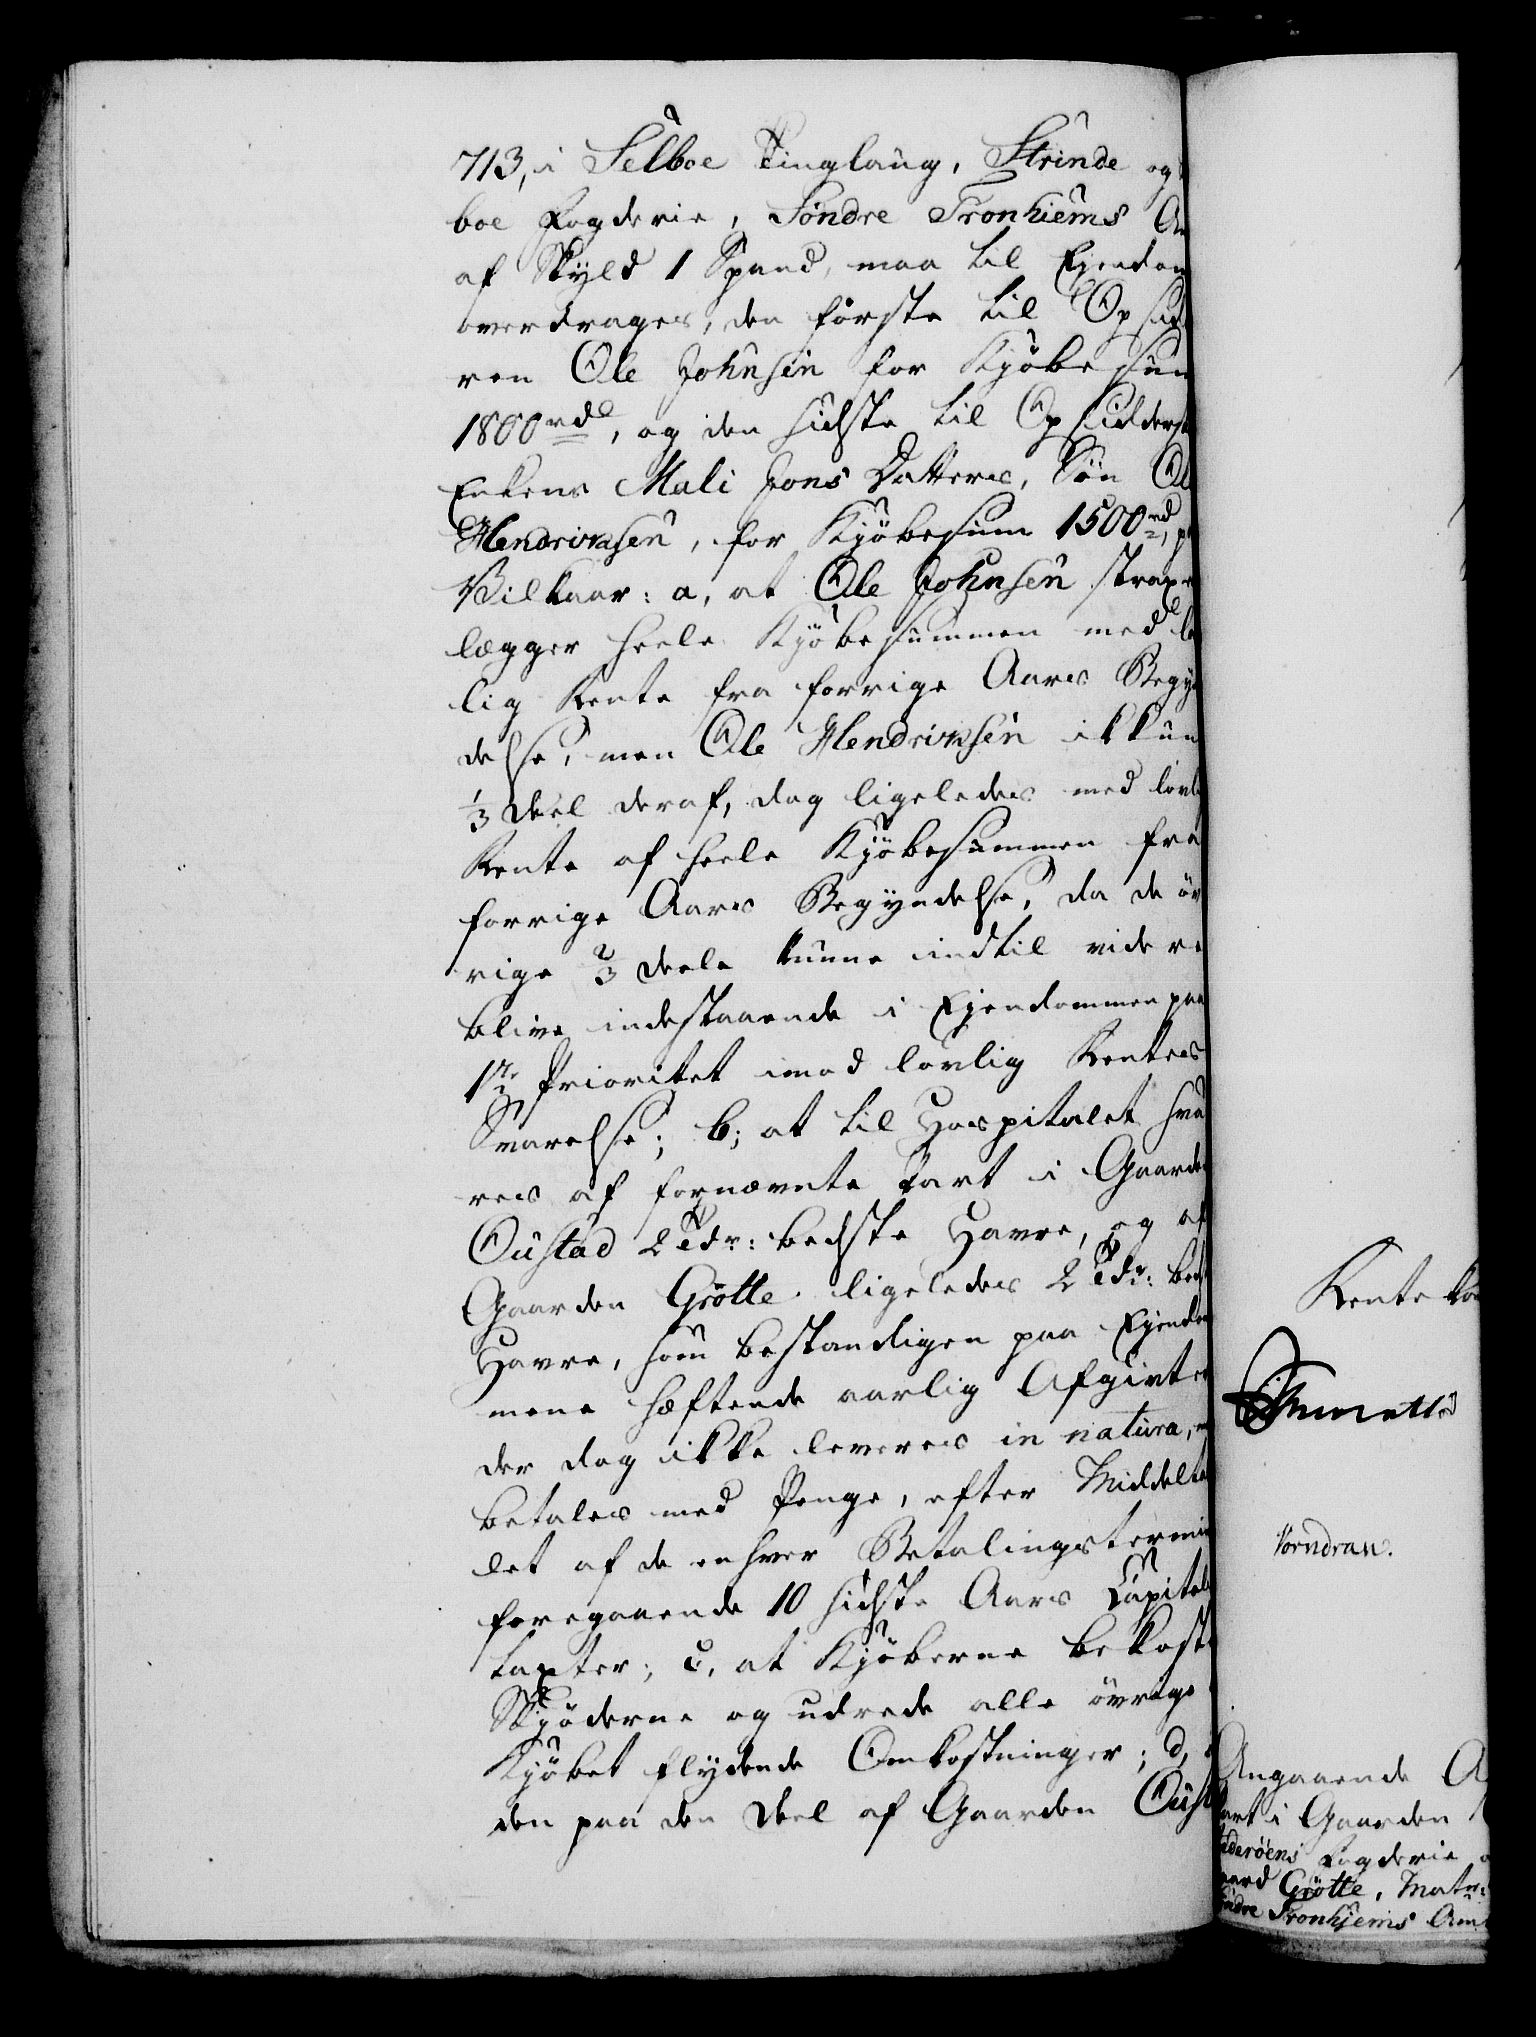 713, i Selboe Tinglaug, Strinde og
boe Fogderie, Söndre Tronhiems
af Skyld 1 Spand, maa til Ejendom
overdrages, den förste til Opsid
ren Ole Johnsen for Kjöbesum
1800 rd, og den sidste til Opsidders
Enkens Mali Jons Datters, Sön Ol
Hendricksen, for Kjöbesum 1500 rd,
Vilkaar: a, at Ole Johnsen strax
lægger heele Kjöbesummen med
lig Rente fra forrige Aars Begyn
delse, men Ole Hendricksen ikkun
1/3 Deel deraf, dog ligeledes med lovl
Rente af heele Kjöbesummen fra
forrige Aars Begyndelse, da de öv
rige 2/3 Deele kunne indtil videre
blive indestaaende i Ejendommen paa
1te Prioritet imod lovlig Rentes
Svarelse; b; at til Hospitalet sva
res af fornævnte Part i Gaarden
Oustad 2 Tdr: bedste Havre, og af
Gaarden Grötte ligeledes 2 Tdr: bed
Havre, som bestandigen paa Ejendom
mene hæftende aarlig Afgivter
der dog ikke leveres in natura,
betales med Penge, efter Middelta
let af de enhver Betalingstermin
foregaaende 10 sidste Aars Capitels
taxter; c, at Kjöberne bekoste
Skjöderne og udrede alle övrige
Kjöbet flydende Omkostninger; d,
den paa den Deel af Gaarden Oust
Rentekam
Vorndran.
Angaaende A
Part i Gaarden
Inderöens Fogderie
Gaard Grötte, Matr:
Söndre Tronhjems Amt